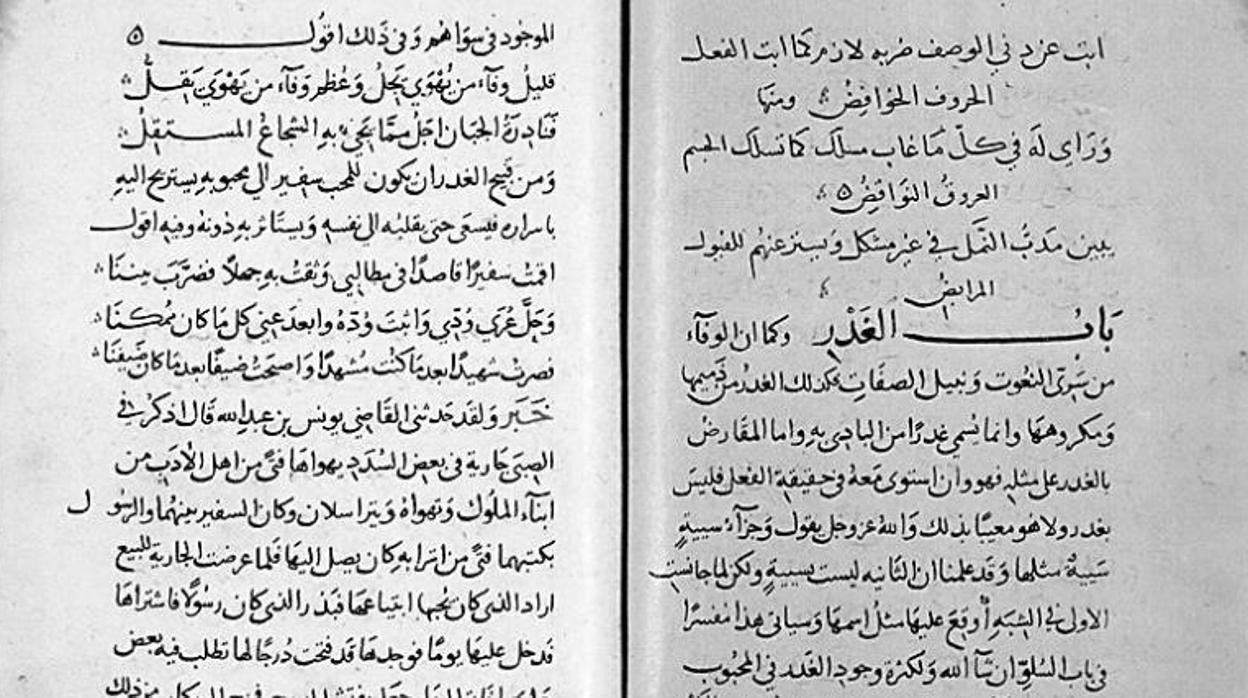 ابت عزد في الوصف ضربه لازم كما ابت الفعل
الحروف الخوافض ومنها
وراي له في كل ما غاب مسلك كما تسلك الجسم
العروق النوافض ه
يبين مدب النمل في غير مشكل ويستر عنهم للفبول
المرابض
باب الغدر وكما ان الوفآء
من سري النعوت ونبيل الصفات فكذلك الغدر من ذميمها
ومكروهها وانما يسمي غدرا من البادي به واما المقارض
بالغدر على مثله فهو وان استوى معه في حقيقة الفعل فليس
بغدر ولا هو معيبا بذلك والله عز وجل يقول وجزآء سيية
سيية مثلها وقد علمنا ان الثانيه ليست بسيية ولكن لما جانست
الاولى في الشبه أوقع عليها مثل اسمها وسياتي هذا مفسرا
في باب السلو ان شآ الله ولكثرة وجود الغدر في المحبوب
الموجود في سواهم وفي ذلك اقول ه
قليل وفآء من يهوي يجل وعظم وفآء من يهوي يقل
فنادرة الجبان اجل مما يجيء به الشجاع المستقل
ومن قبيح الغدر ان يكون للمحب سفير الي محبوبه يستريح اليه
باسراره فيسعى حتى يقلبه الي نفسه ويستاثر به دونه وفيه اقول
اقمت سفيرا قاصدا في مطالبي وثقت به جهلا فضرب بيننا
وحل عري ودي واثبت وده وابعد عني كل ما كان ممكنا
فصرت شهيدا بعد ما كنت مشهدا واصبحت ضيفا بعد ما كان ضيفنا
خبر ولقد حدثني القاضي يونس بن عبد الله قال اذكر في
الصبى جارية في بعض السدد يهواها فتى من اهل الادب من
ابنآء الملوك وتهواه ويتراسلان وكان السفير بينهما والرسول
بكتبهما فتى من اترابه كان يصل اليها فلما عرضت الجارية للبيع
اراد الذي كان يحبها ابتياعها فبدر الذي كان رسولا فاشتراها
فدخل عليها يوما فوجدها قد فتحت درجا لها تطلب فيه بعض